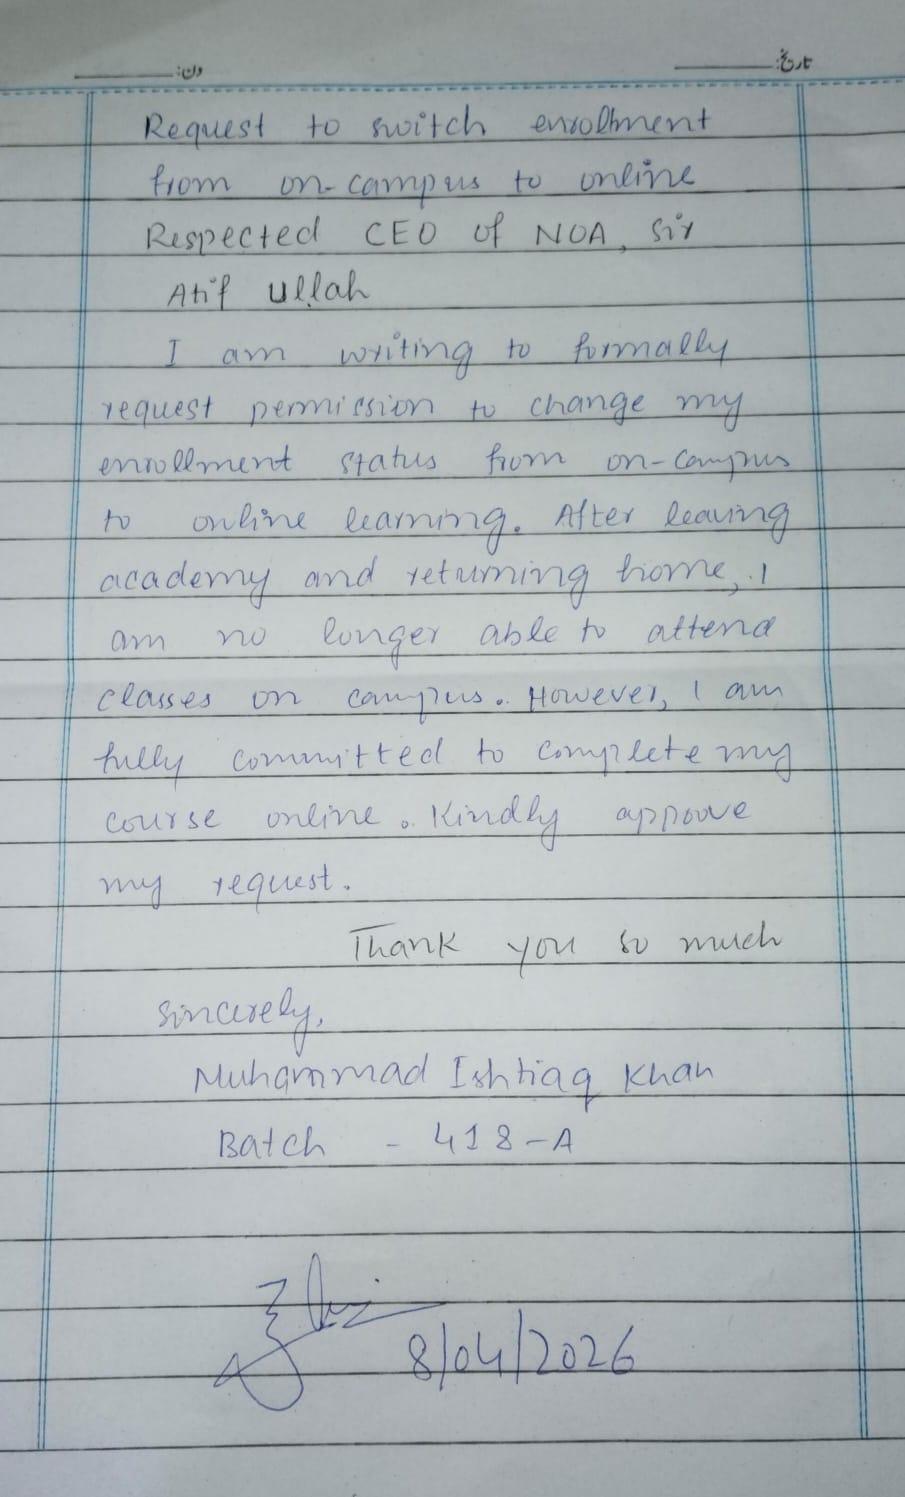 دن: تاریخ:
Request to switch enrollment
from on-campus to online
Respected CEO of NOA, Sir
Atif Ullah
I am writing to formally
request permission to change my
enrollment status from on-campus
to online learning. After leaving
academy and returning home, I
am no longer able to attend
classes on campus. However, I am
fully committed to complete my
course online. Kindly approve
my request.
Thank you so much
Sincerely,
Muhammad Ishtiaq Khan
Batch - 418-A
8/04/2026